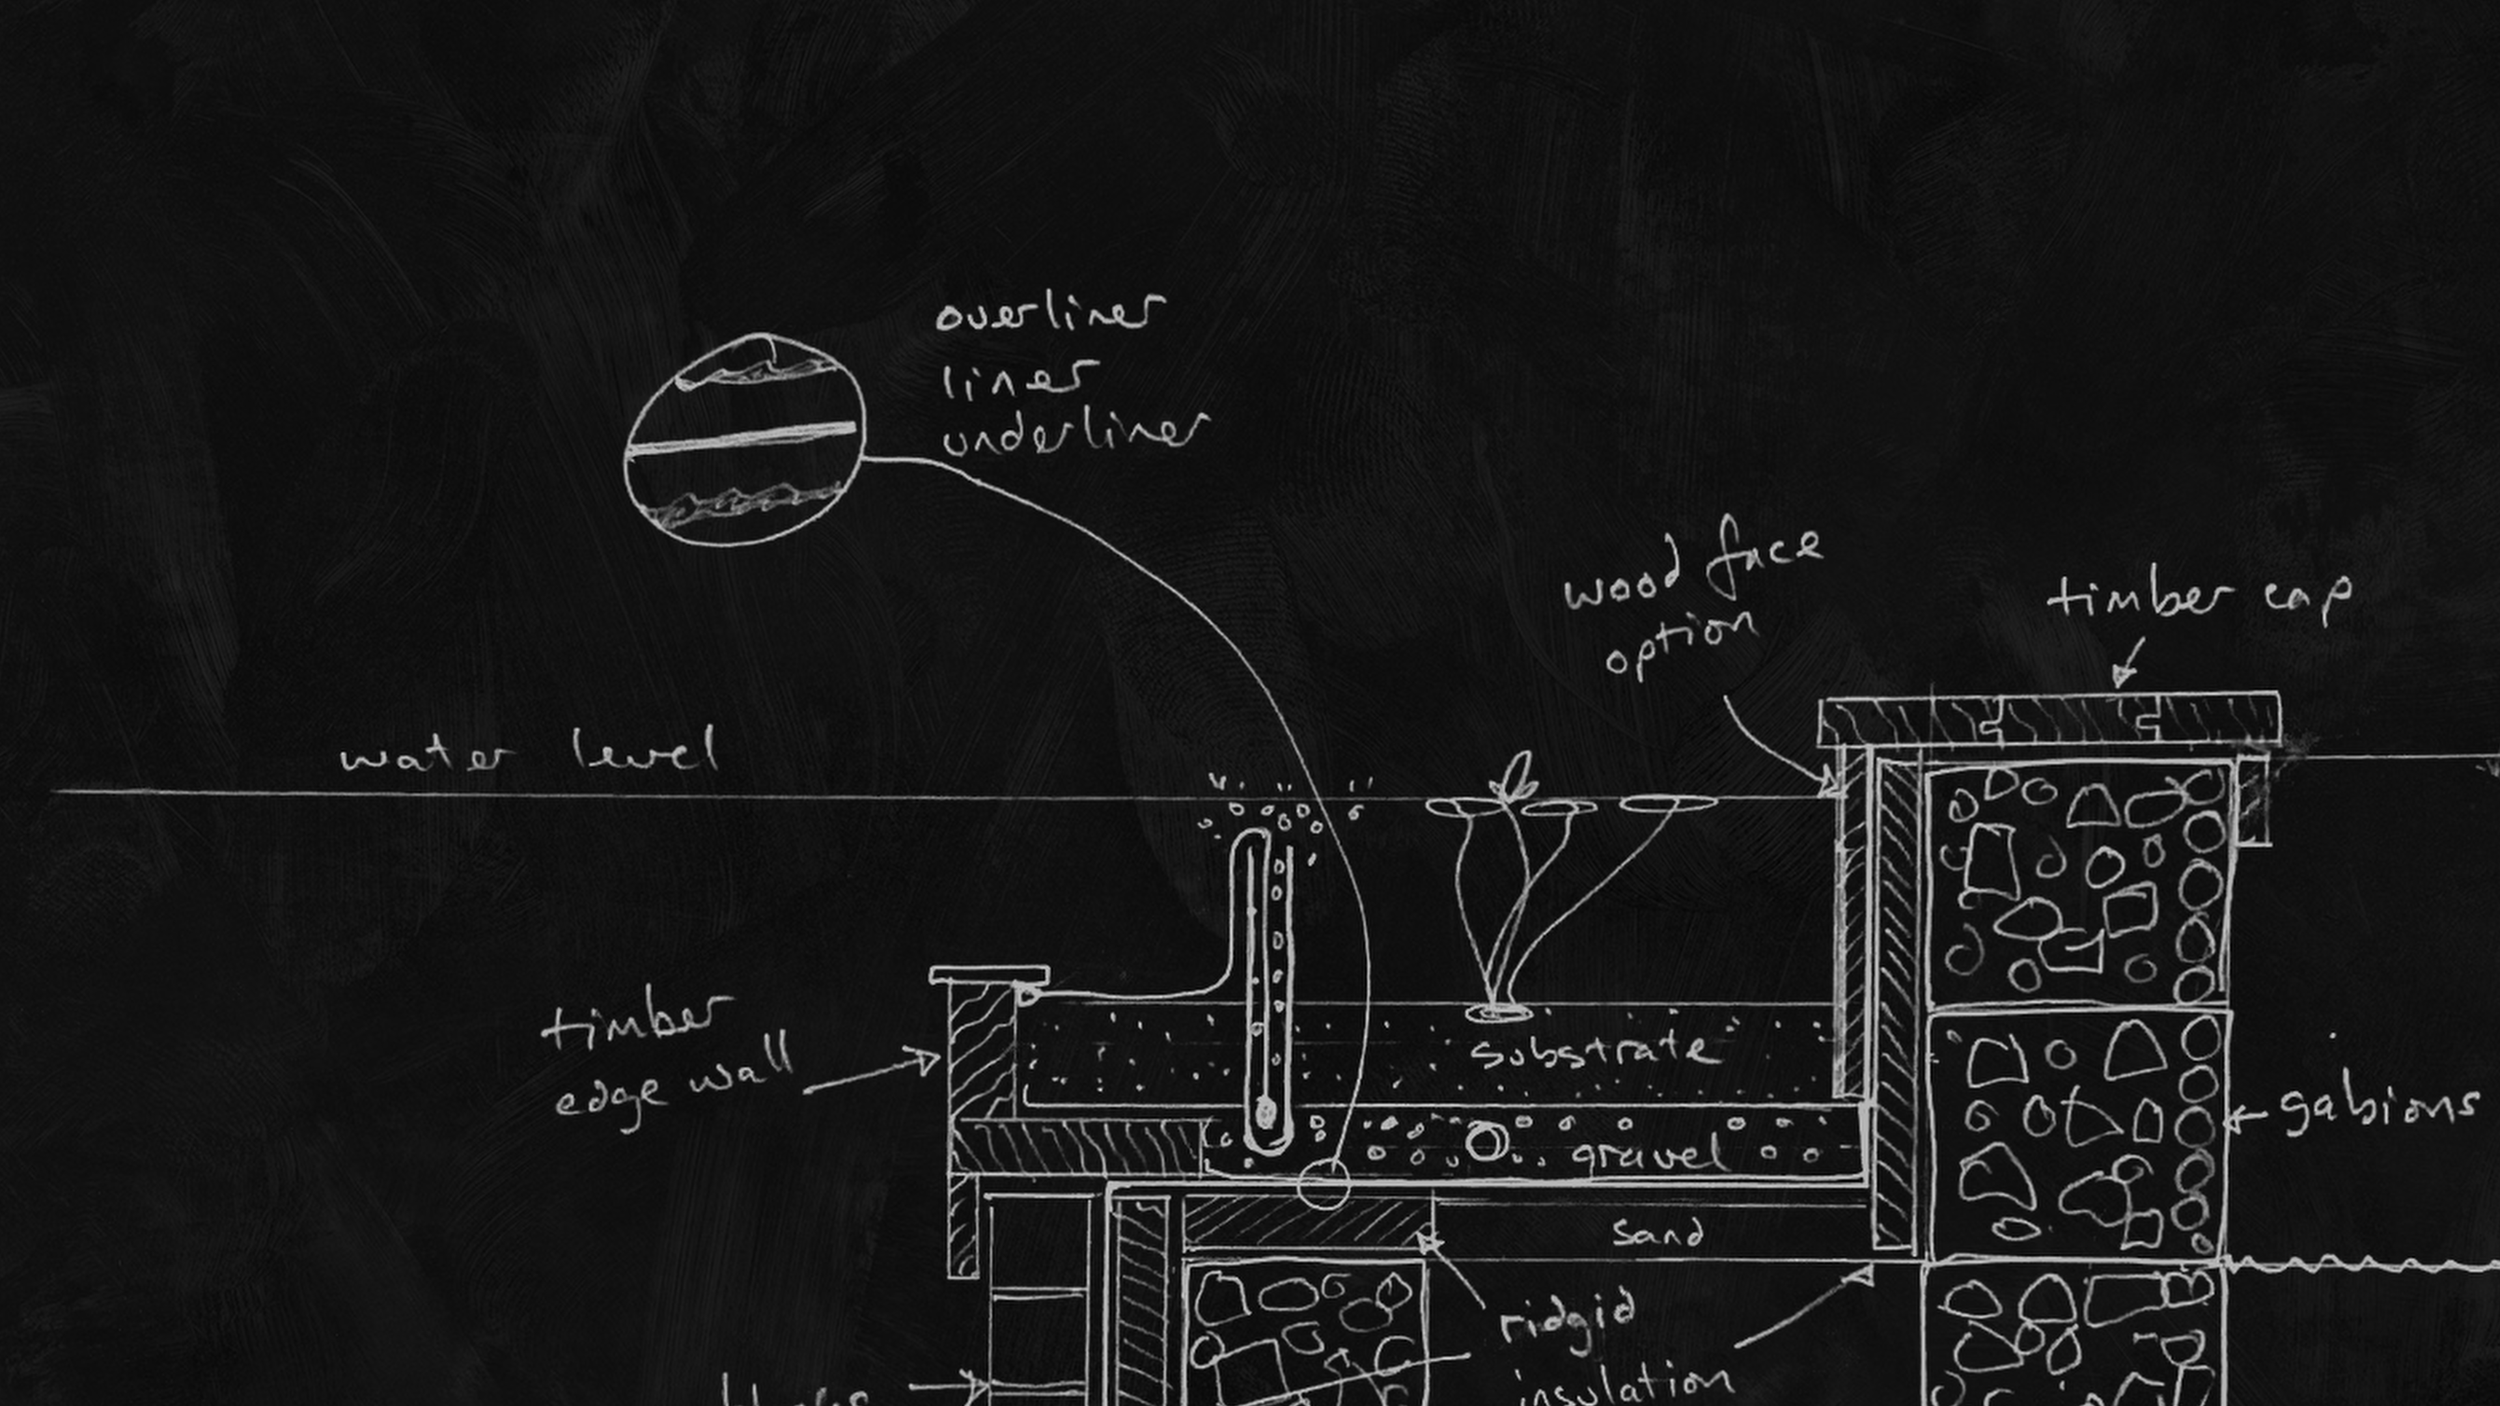 overliner
liner
underliner
wood face
option
timber cap
water level
timber
edge wall
substrate
gabions
gravel
sand
ridgid
insulation